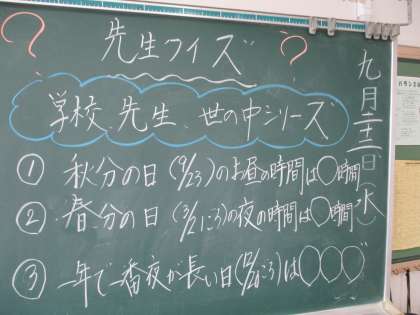 ? 先生クイズ ?
学校、先生、世の中シリーズ
① 秋分の日(9/23)のお昼の時間は○時間
② 春分の日(3/21ころ)の夜の時間は○時間
③ 一年で一番夜が長い日(12/20ごろ)は○○○
九月二十二日 水